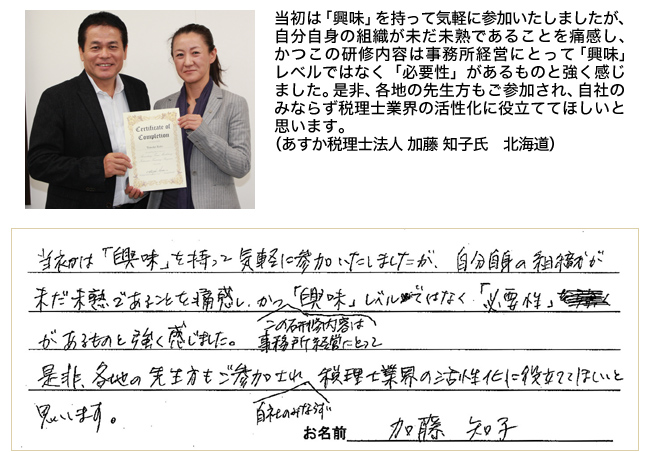 当初は「興味」を持って気軽に参加いたしましたが、
自分自身の組織が未だ未熟であることを痛感し、
かつこの研修内容は事務所経営にとって「興味」
レベルではなく「必要性」があるものと強く感じ
ました。是非、各地の先生方もご参加され、自社の
みならず税理士業界の活性化に役立ててほしいと
思います。
（あすか税理士法人 加藤 知子氏　北海道）
Certificate of
Completion
当初は「興味」を持って気軽に参加いたしましたが、自分自身の組織が
未だ未熟であることを痛感し、かつ「興味」レベルではなく「必要性」
があるものと強く感じました。
この研修内容は
事務所経営にとって
是非、各地の先生方もご参加され、税理士業界の活性化に役立ててほしいと
思います。
自社のみならず
お名前 加藤 知子